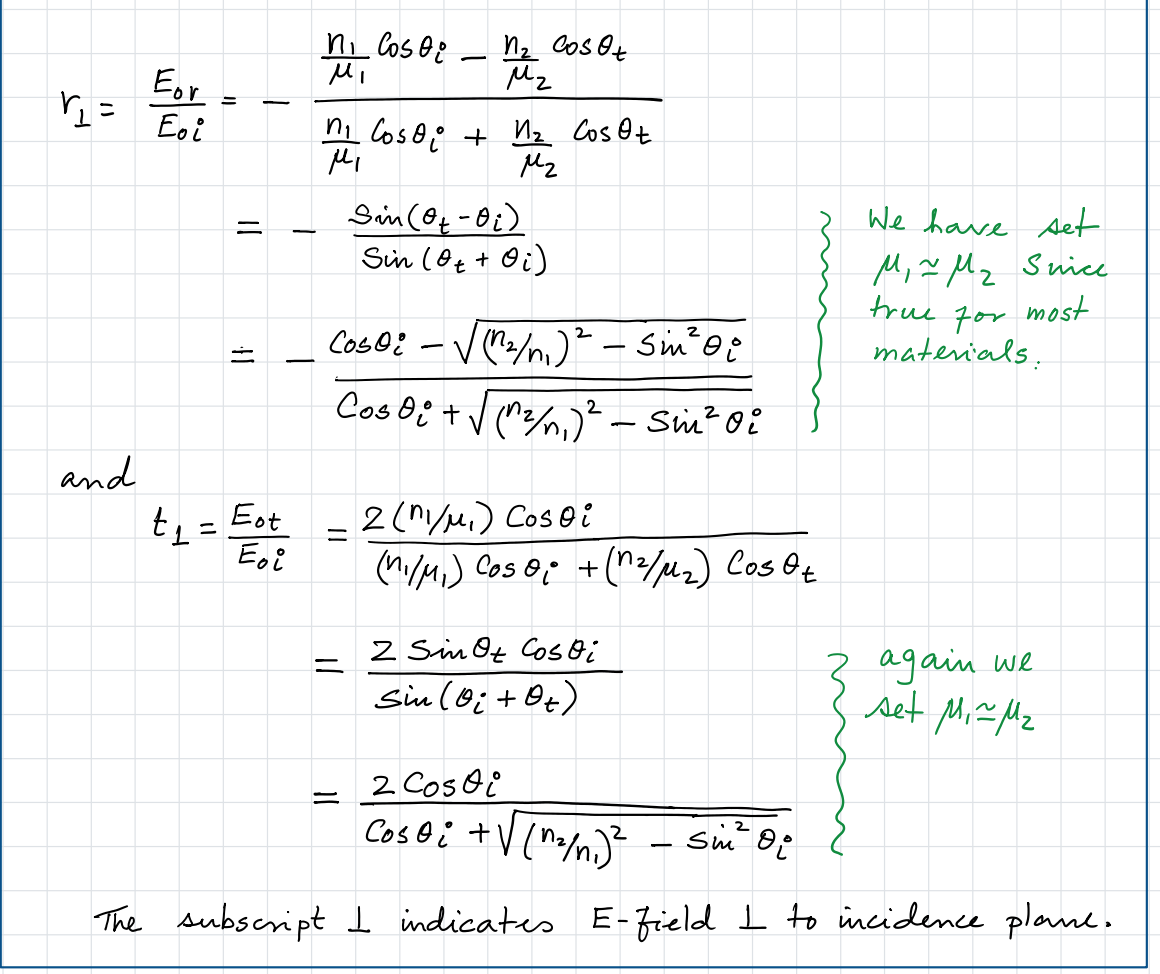 r⊥ = E₀r/E₀i = − (n₁/μ₁ Cosθi − n₂/μ₂ Cosθt) / (n₁/μ₁ Cosθi + n₂/μ₂ Cosθt)
= − Sin(θt − θi) / Sin(θt + θi)
= − (Cosθi − √((n₂/n₁)² − Sin²θi)) / (Cosθi + √((n₂/n₁)² − Sin²θi))
We have set
μ₁ ≃ μ₂ Since
true for most
materials.
and
t⊥ = E₀t/E₀i = 2(n₁/μ₁) Cosθi / ((n₁/μ₁) Cosθi + (n₂/μ₂) Cosθt)
= 2 Sinθt Cosθi / Sin(θi + θt)
= 2 Cosθi / (Cosθi + √((n₂/n₁)² − Sin²θi))
again we
set μ₁ ≃ μ₂
The subscript ⊥ indicates E-field ⊥ to incidence plane.